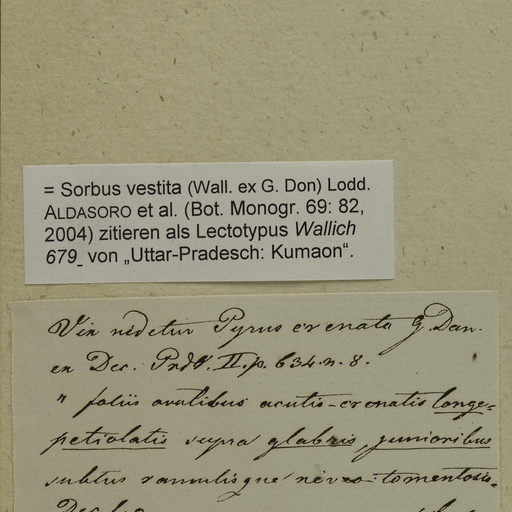 = Sorbus vestita (Wall. ex G. Don) Lodd.
ALDASORO et al. (Bot. Monogr. 69: 82,
2004) zitieren als Lectotypus Wallich
679 von „Uttar-Pradesch: Kumaon“.
Vix videtur Pyrus crenata G. Don.
ex Dec. Prdr. II. p. 634. n. 8.
" foliis ovalibus acutis-crenatis longe-
petiolatis supra glabris, junioribus
subtus ramulisque niveo-tomentosis.